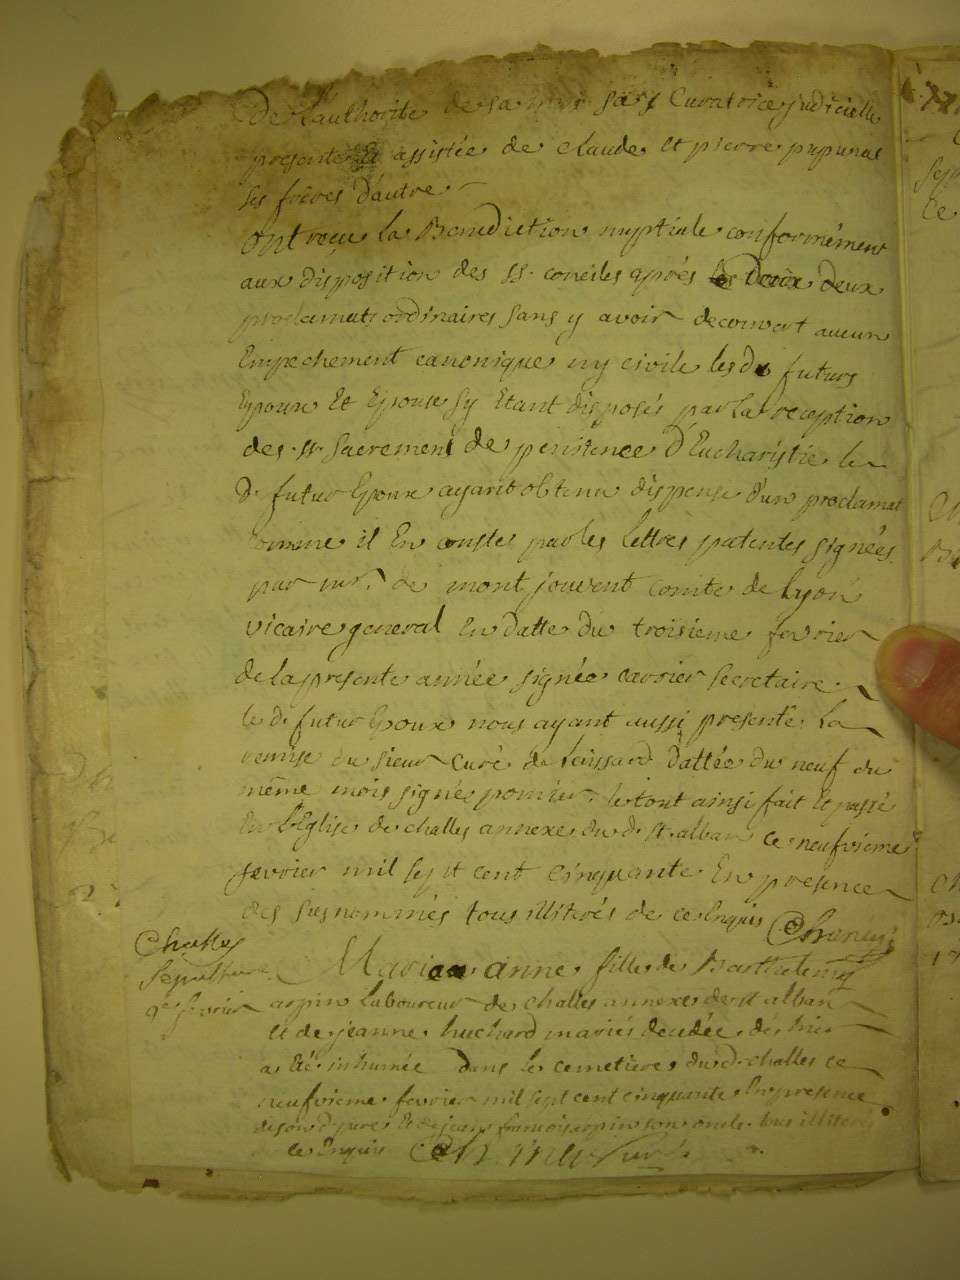 De L'authorite de sa mere sa Curatrice judicielle
presente Et assistée de claude et pierre pupunat
ses freres d'autre
Ont recu La Benediction nuptiale conformément
aux disposition des SS. conciles aprés deux
proclamats ordinaires sans y avoir decouvert aucun
Empechement canonique ny civile lesd futurs
Epoux Et Epouse sy Etant disposés par La reception
des SS. Sacrement de penitence D'Eucharistie le
D. futur Epoux ayant obtenu dispense d'un proclamat
comme il En conste par les Lettres patentes signées
par mr. de mont jouvent comte de Lyon
vicaire general En datte du troisieme fevrier
de la presente année signée carrier secretaire
le d. futur Epoux nous ayant aussi presenté La
remise du sieur Curé de Leissard Dattée du neuf du
même mois signée le tout ainsi fait Et passé
En L'Eglise de challes annexe du d. st. alban ce neufvieme
fevrier mil sept cent cinquante En presence
des susnommés tous illiterés de ce Enquis
Challes
Sepulture
9e fevrier
Marie anne fille de Barthelemy
arpin Laboureur de challes annexe de st alban
Et de jeanne huchard mariés decedée dés hier
a Eté inhumée dans le cemetiere dud. challes ce
neufvieme fevrier mil sept cent cinquante En presence
de son d. pere Et de jean francois arpin son oncle tous illiteres
ce Enquis